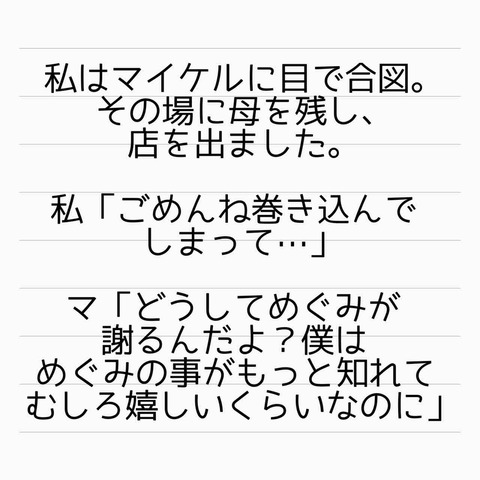 私はマイケルに目で合図。
その場に母を残し、
店を出ました。
私「ごめんね巻き込んで
しまって…」
マ「どうしてめぐみが
謝るんだよ？僕は
めぐみの事がもっと知れて
むしろ嬉しいくらいなのに」